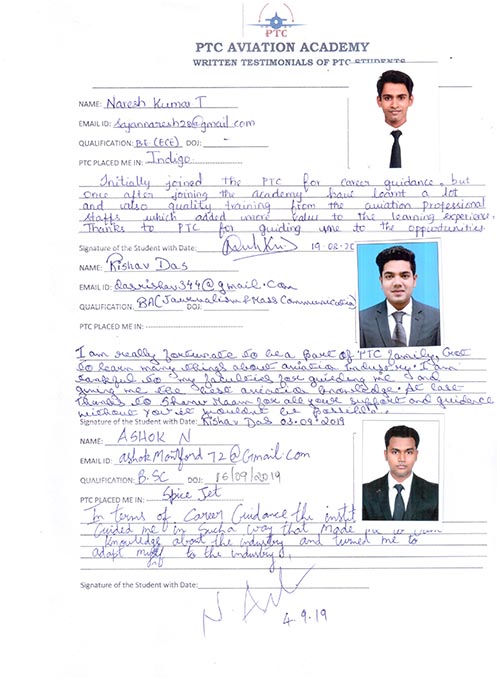 PTC
PTC AVIATION ACADEMY
WRITTEN TESTIMONIALS OF PTC STUDENTS
NAME: Naresh Kumar T
EMAIL ID: Sajannaresh28@gmail.com
QUALIFICATION: BE (ECE) DOJ: -
PTC PLACED ME IN: Indigo
Initially joined the PTC for career guidance, but
Once after joining the academy have learnt a lot
and also quality training from the aviation professional
Staffs which added more value to the learning experience.
Thanks to PTC for guiding me to the opportunities
Signature of the Student with Date: 19-08-20
NAME: Rishav Das
EMAIL ID: dasrishav344@gmail.com
QUALIFICATION: BA(Journalism & Mass Communication) DOJ:
PTC PLACED ME IN:
I am really fortunate to be a Part of PTC family, Got
to learn many things about aviation industry. I am
thankful to my faculties for guiding me and
giving me the best aviation knowledge. At last
thanks to Maam for all your support and guidance
without you it wouldn't be possible.
Signature of the Student with Date: Rishav Das 03-09-2019
NAME: ASHOK N
EMAIL ID: ashokMontford72@Gmail.com
QUALIFICATION: B.SC DOJ: 16/09/2019
PTC PLACED ME IN: Spice Jet
In terms of Career Guidance the instit
Guided me in Such a way that Made
knowledge about the industry and turned me to
adapt myself to the industry.
Signature of the Student with Date:
4.9.19